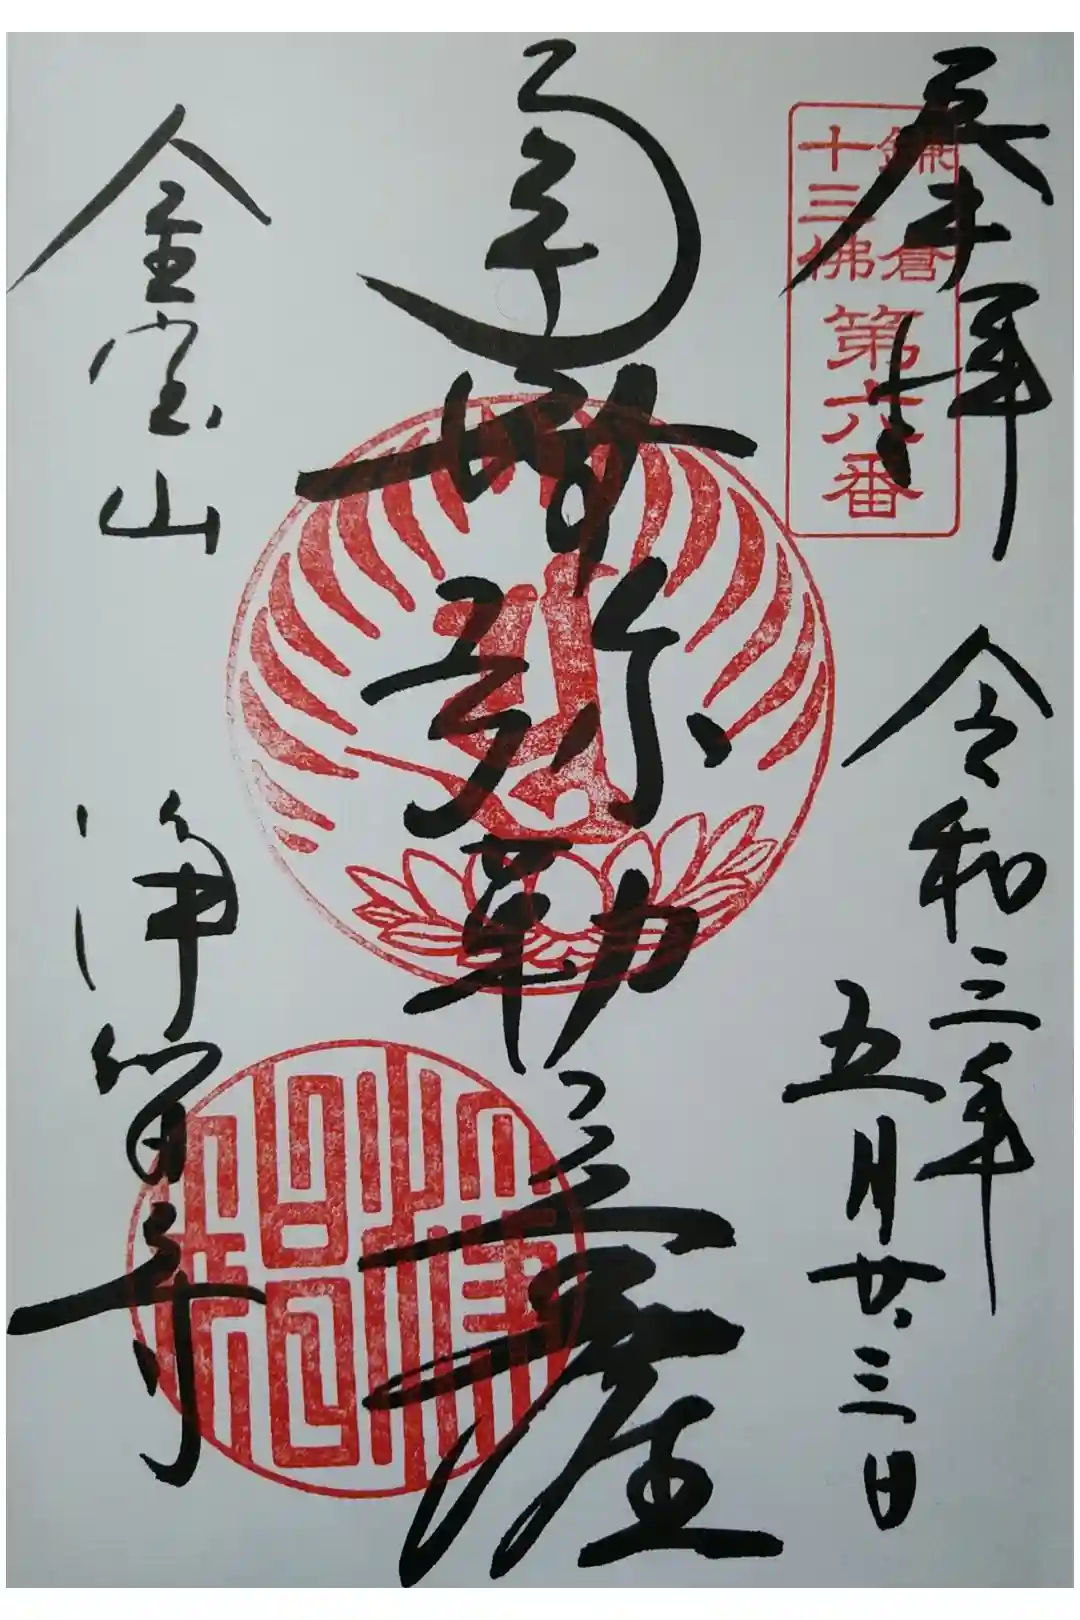 奉拝
鎌倉
十三佛
第六番
令和三年
五月廿三日
南無弥勒菩薩
金宝山
浄智寺